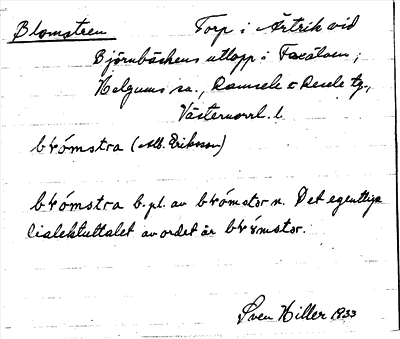 Blomstren Torp i Ärtrik vid
Björnbäckens utlopp i Faxälven;
Helgums sn., Ramsele o Resele tg.,
Västernorrl. l
blómstra (Alb. Eriksson)
blómstra b.pl. av blómstor n. Det egentliga
dialektuttalet av ordet är blómstor.
Sven Hiller 1933